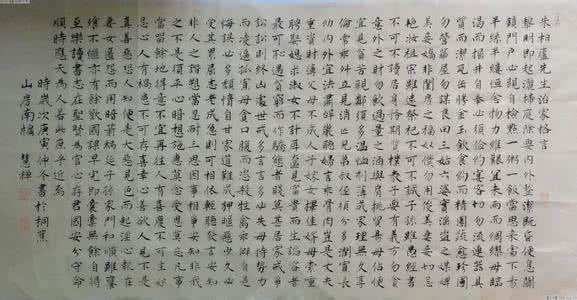 朱柏廬先生治家格言
黎明即起灑掃庭除要內外整潔既昏便息關
鎖門戶必親自檢點一粥一飯當思來處不易
半絲半縷恒念物力維艱宜未雨而綢繆毋臨
渴而掘井自奉必須儉約宴客切勿流連器具
質而潔瓦缶勝金玉飲食約而精園蔬愈珍饈
勿營華屋勿謀良田三姑六婆實淫盜之媒婢
美妾嬌非閨房之福奴僕勿用俊美妻妾切忌
艷妝祖宗雖遠祭祀不可不誠子孫雖愚經書
不可不讀居身務期質樸教子要有義方勿貪
意外之財勿飲過量之酒與肩挑貿易毋佔便
宜見貧苦親鄰須多溫恤刻薄成家理無久享
倫常乖舛立見消亡兄弟叔侄須分多潤寡長
幼內外宜法肅辭嚴聽婦言乖骨肉豈是丈夫
重資財薄父母不成人子嫁女擇佳婿毋索重
聘娶媳求淑女勿計厚奩見富貴而生諂容者
最可恥遇貧窮而作驕態者賤莫甚居家戒爭
訟訟則終凶處世戒多言言多必失毋恃勢力
而凌逼孤寡毋貪口腹而恣殺牲禽乖僻自是
悔誤必多頹惰自甘家道難成狎暱惡少久必
受其累屈志老成急則可相依輕聽發言安知
非人之譖愬當忍耐三思因事相爭安知非我
之不是須平心暗想施惠勿念受恩莫忘凡事
當留餘地得意不宜再往人有喜慶不可生妒
忌心人有禍患不可生喜幸心善欲人見不是
真善惡恐人知便是大惡見色而起淫心報在
妻女匿怨而用暗箭禍延子孫家門和順雖饔
飧不繼亦有餘歡國課早完即囊橐無餘自得
至樂讀書志在聖賢為官心存君國安分守命
順時應天為人若此庶乎近焉
時歲次庚寅仲冬書於桐蕉
山房南牖 慧禪